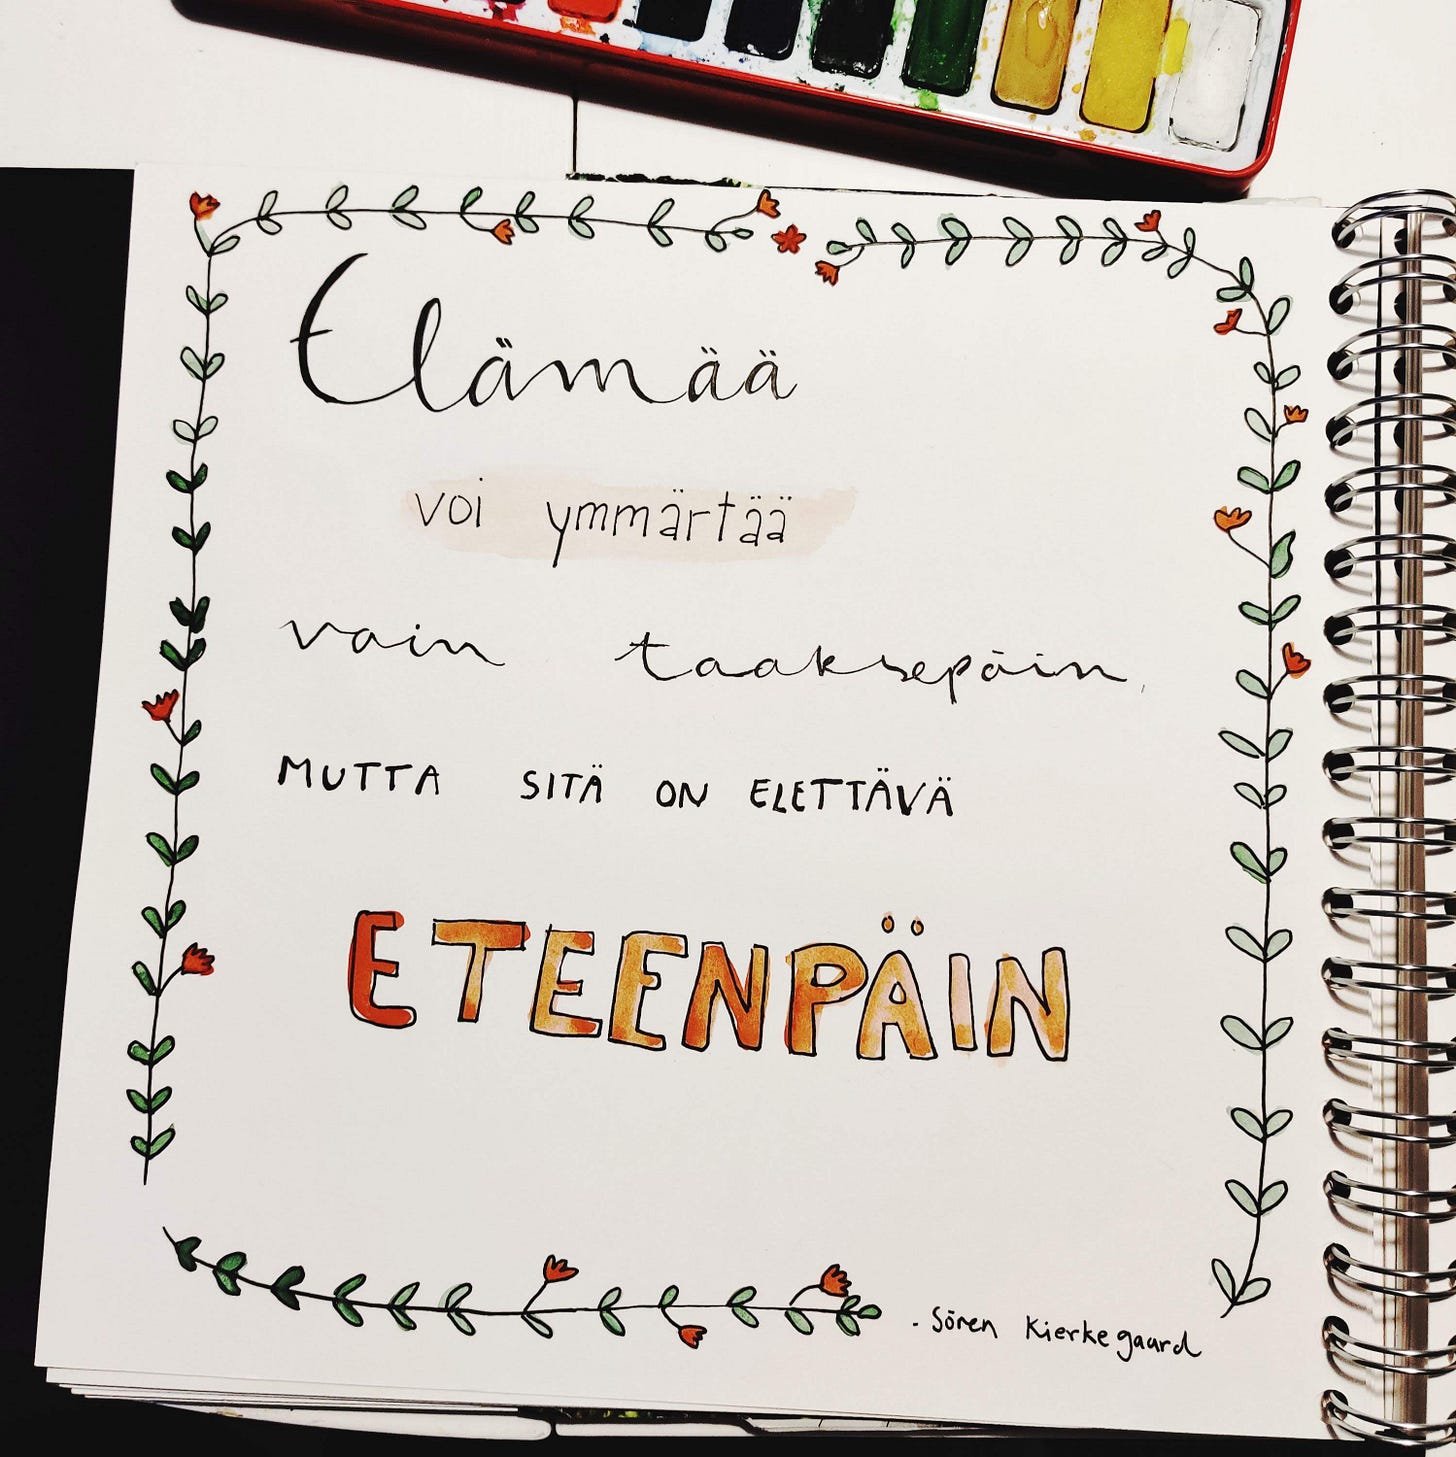 Elämää
voi ymmärtää
vain taaksepäin,
MUTTA SITÄ ON ELETTÄVÄ
ETEENPÄIN
- Sören Kierkegaard